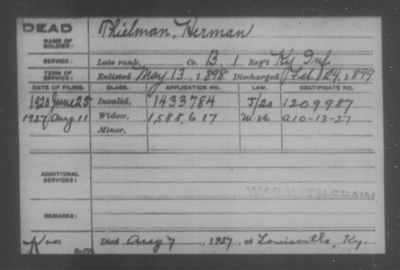 DEAD
NAME OF SOLDIER: Thielman, Herman
SERVICE: Late rank, Co. B, 1 Reg't Ky Inf
TERM OF SERVICE: Enlisted May 13, 1898, Discharged Feb 24, 1899
DATE OF FILING. CLASS. APPLICATION NO. LAW. CERTIFICATE NO.
1920 June 25 Invalid, 1433784 J/20 1209987
1927 Aug 11 Widow, 1,588,617 M 26 A10-13-27
Minor,
ADDITIONAL SERVICES:
WAR WITH SPAIN
REMARKS:
Died Aug 7, 1927, at Louisville, Ky.